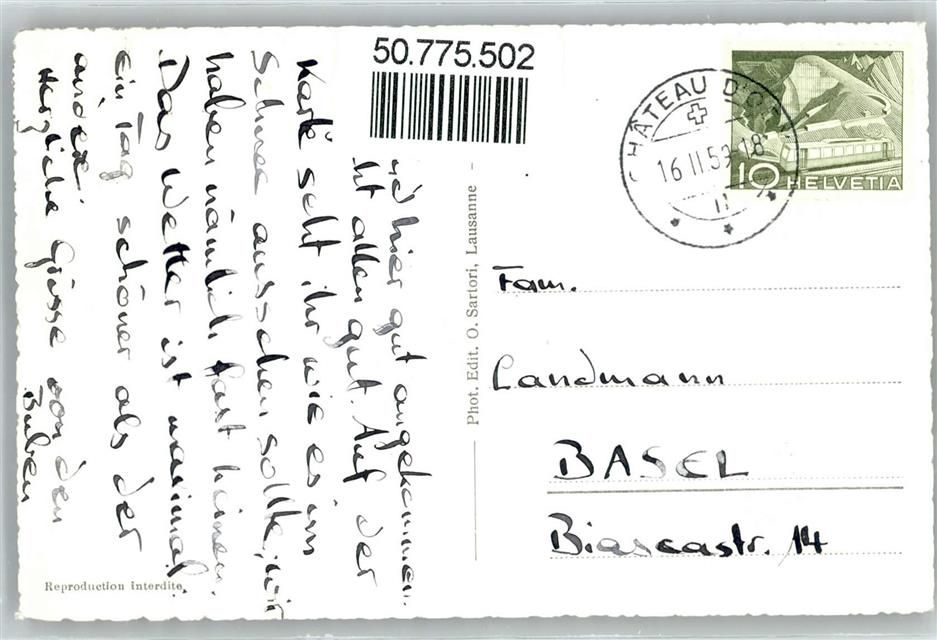 50.775.502
CHÂTEAU D'
16 II 59 18
10 HELVETIA
hier gut angekommen.
ht allen gut. Auf der
Karte seht ihr wie es im
Schnee aussehen sollte, wir
haben nämlich fast keinen.
Das Wetter ist maximal.
Ein Tag schöner als der
andere.
Herzliche Grüsse von den
Buben
Phot. Edit. O. Sartori, Lausanne
Fam.
Landmann
BASEL
Biascastr. 14
Reproduction interdite